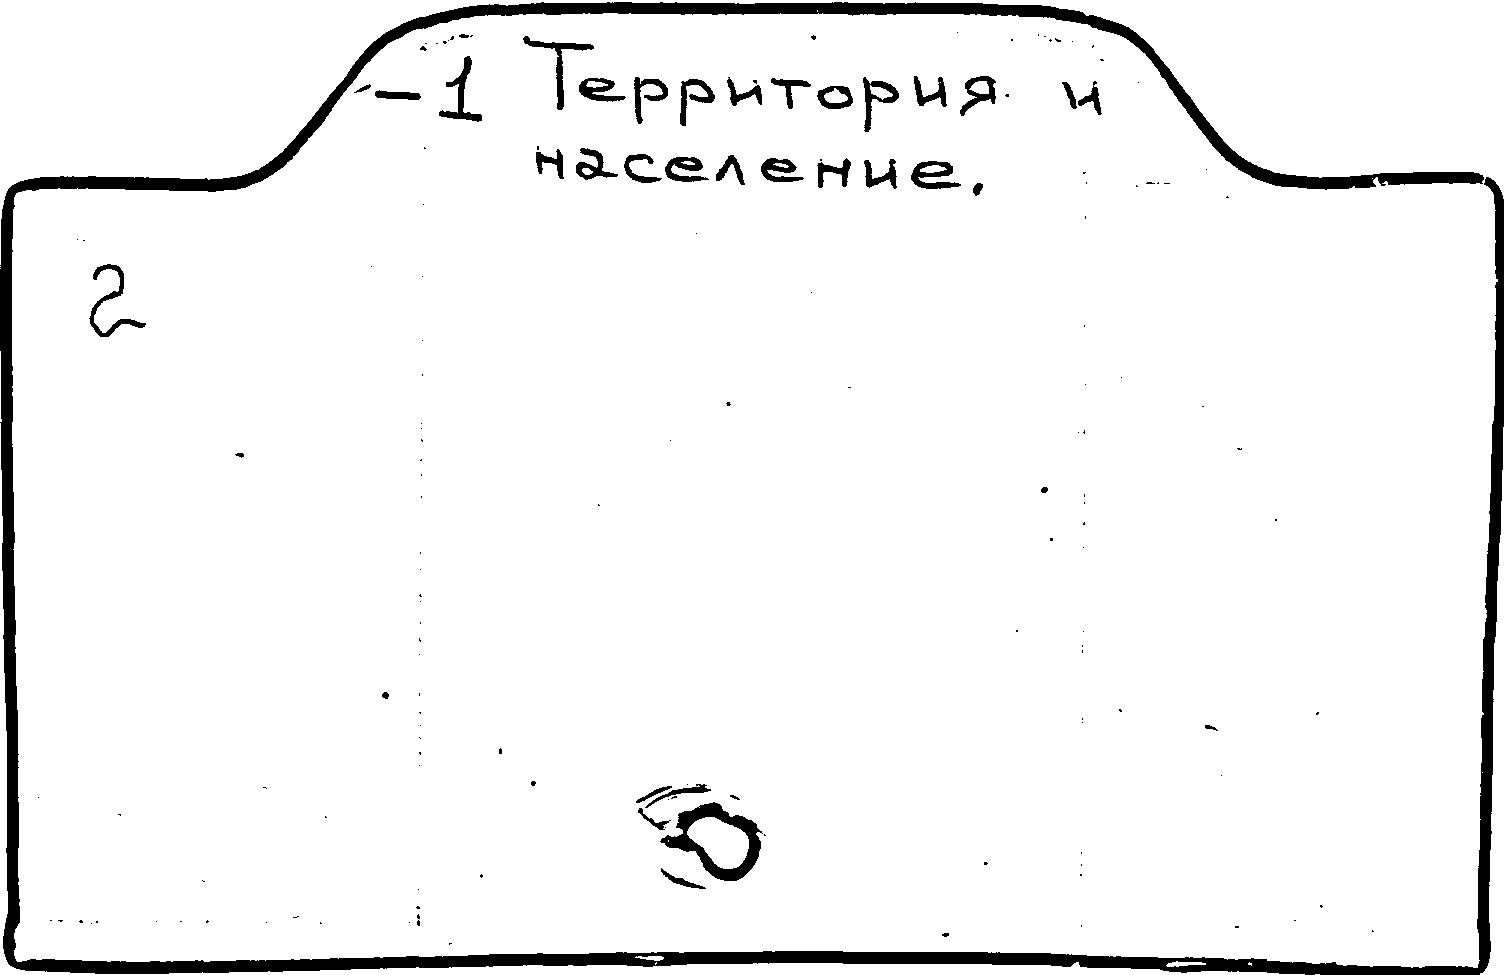 -1 Территория и
население.
2